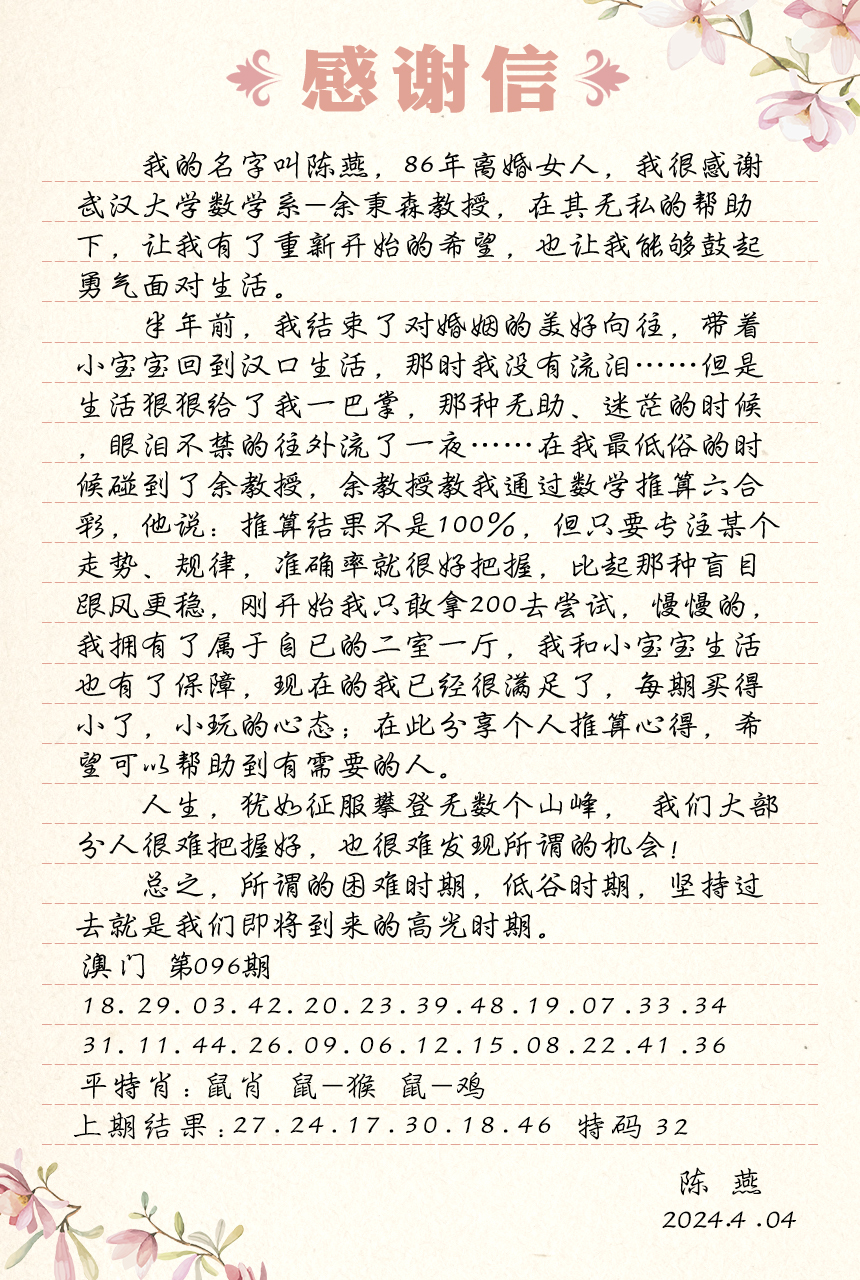 感谢信
我的名字叫陈燕，86年离婚女人，我很感谢
武汉大学数学系—余秉森教授，在其无私的帮助
下，让我有了重新开始的希望，也让我能够鼓起
勇气面对生活。
半年前，我结束了对婚姻的美好向往，带着
小宝宝回到汉口生活，那时我没有流泪……但是
生活狠狠给了我一巴掌，那种无助、迷茫的时候
，眼泪不禁的往外流了一夜……在我最低俗的时
候碰到了余教授，余教授教我通过数学推算六合
彩，他说：推算结果不是100%，但只要专注某个
走势、规律，准确率就很好把握，比起那种盲目
跟风更稳，刚开始我只敢拿200去尝试，慢慢的，
我拥有了属于自已的二室一厅，我和小宝宝生活
也有了保障，现在的我已经很满足了，每期买得
小了，小玩的心态；在此分享个人推算心得，希
望可以帮助到有需要的人。
人生，犹如征服攀登无数个山峰， 我们大部
分人很难把握好，也很难发现所谓的机会！
总之，所谓的困难时期，低谷时期，坚持过
去就是我们即将到来的高光时期。
澳门 第096期
18.29.03.42.20.23.39.48.19.07.33.34
31.11.44.26.09.06.12.15.08.22.41.36
平特肖：鼠肖 鼠—猴 鼠—鸡
上期结果：27.24.17.30.18.46 特码 32
陈 燕
2024.4 .04